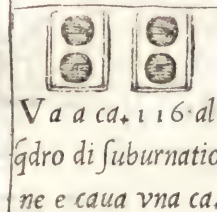 Va a ca. 116. al
q̃dro di ſuburnatio
ne e caua vna ca.